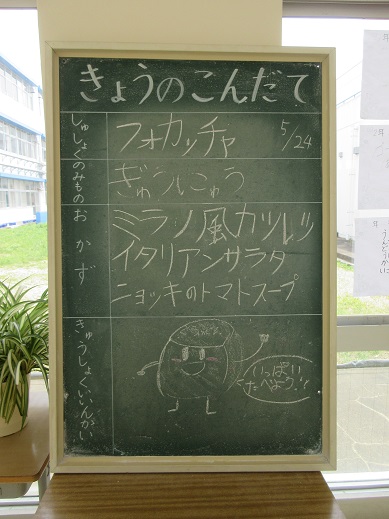 きょうのこんだて
しゅしょく
フォカッチャ
5/24
のみもの
ぎゅうにゅう
おかず
ミラノ風カツレツ
イタリアンサラダ
ニョッキのトマトスープ
きゅうしょくいいんかい
いっぱい
たべよう!!